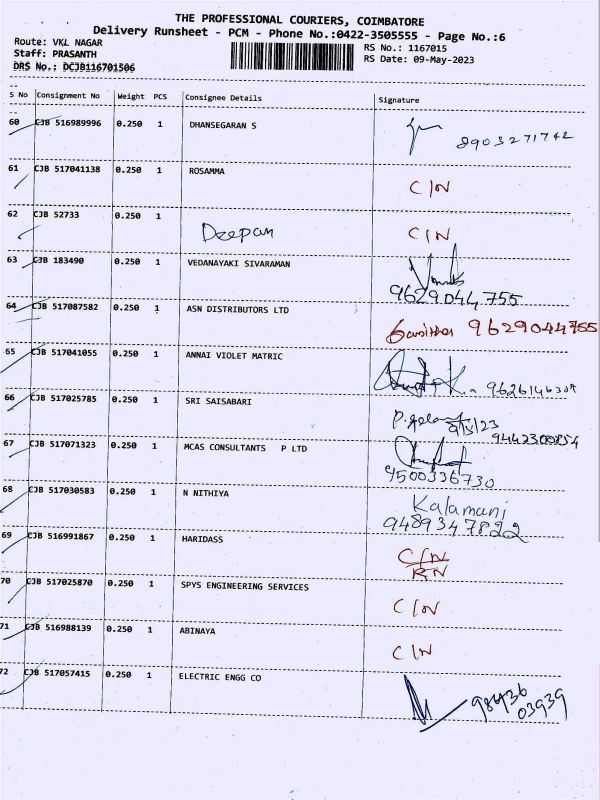 THE PROFESSIONAL COURIERS, COIMBATORE
Delivery Runsheet - PCM - Phone No.:0422-3505555 - Page No.:6
Route: VKL NAGAR
RS No.: 1167015
Staff: PRASANTH
RS Date: 09-May-2023
DRS No.: DCJB116701506
--
S No Consignment No Weight PCS Consignee Details Signature
--
60 CJB 516989996 0.250 1 DHANSEGARAN S 8903271742
61 CJB 517041138 0.250 1 ROSAMMA C/N
62 CJB 52733 0.250 1 Deepan C/N
63 CJB 183490 0.250 1 VEDANAYAKI SIVARAMAN
9629044755
64 CJB 517087582 0.250 1 ASN DISTRIBUTORS LTD 9629044755
65 CJB 517041055 0.250 1 ANNAI VIOLET MATRIC
66 CJB 517025785 0.250 1 SRI SAISABARI
9/5/23
67 CJB 517071323 0.250 1 MCAS CONSULTANTS P LTD
9500336730
68 CJB 517030583 0.250 1 N NITHIYA Kalamani
9489347822
69 CJB 516991867 0.250 1 HARIDASS C/N
RN
70 CJB 517025870 0.250 1 SPYS ENGINEERING SERVICES C/N
71 CJB 516988139 0.250 1 ABINAYA C/N
72 CJB 517057415 0.250 1 ELECTRIC ENGG CO 98436
03939